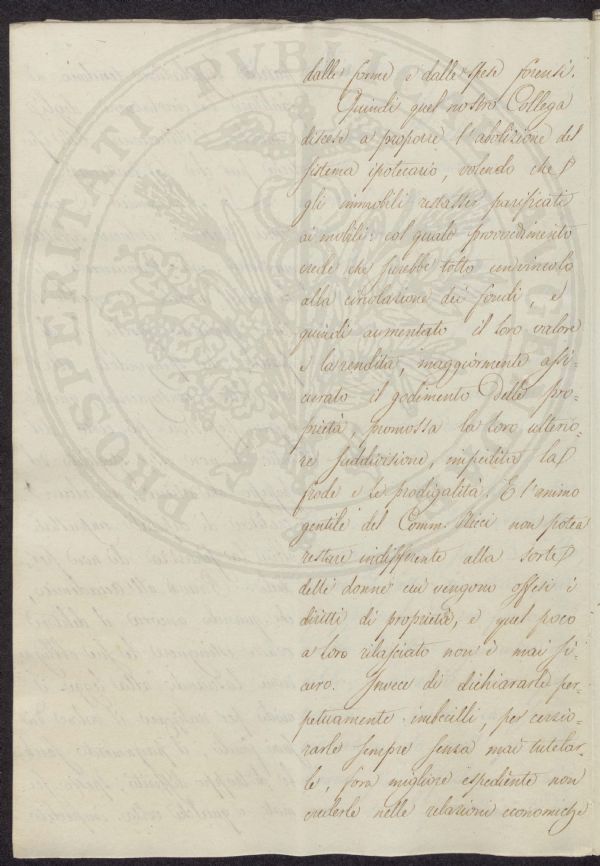 dalle forme e dalle spese forensi.
Quindi quel nostro Collega
discese a proporre l'abolizione del
sistema ipotecario, volendo che
gli immobili restasser parificati
ai mobili: col quale provvedimento
crede che sarebbe tolto ogni vincolo
alla circolazione dei fondi, e
quindi aumentato il loro valore
e la rendita, maggiormente assi-
curato il godimento delle pro-
prietà, promossa la loro ulterio-
re suddivisione, impedita la
frode e le prodigalità. E l'animo
gentile del Comm. Ricci non potea
restare indifferente alla sorte
delle donne cui vengono offesi i
diritti di proprietà, e quel poco
a loro rilasciato non è mai si-
curo. Invece di dichiararle per-
petuamente imbecilli, per
sempre senza mai tutelar-
le, fora migliore espediente non
crederle nelle relazioni economiche
PROSPERITATI PVBLICAE